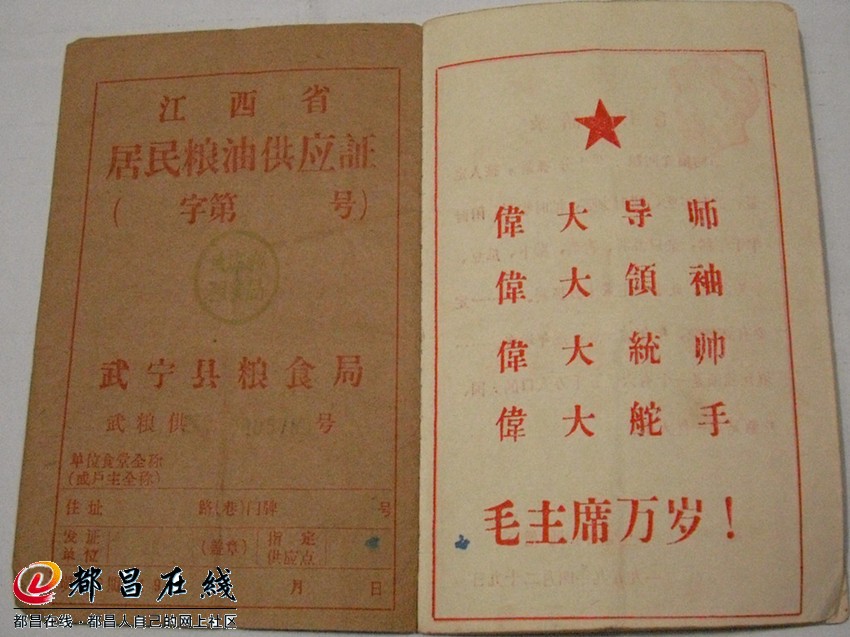 江西省
居民粮油供应証
( 字第 号)
武宁县粮食局
武粮供 号
单位食堂全称
(或户主全称)
住址 路(巷)门牌 号
发证单位 (盖章) 指定供应点
月 日
偉大导师
偉大領袖
偉大統帅
偉大舵手
毛主席万岁!
都昌在线
都昌在线--都昌人自己的网上社区